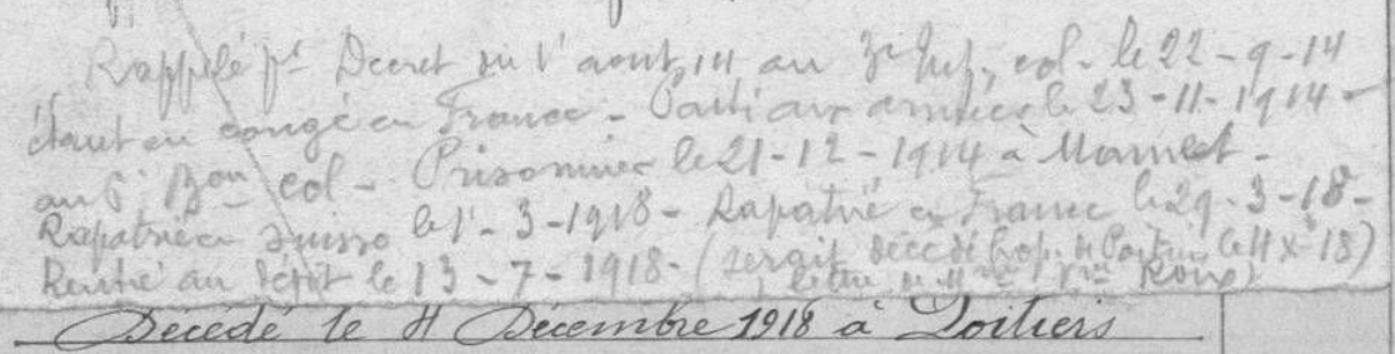 Rappelé pr Decret du 1r aout 14 au 3e Inf. col. le 22-9-14
étant en congé en France - Parti aux armées le 23-11-1914 -
au 5e Bon col - Prisonnier le 21-12-1914 à Mametz -
Rapatrié en Suisse le 1r-3-1918 - Rapatrié en France le 29-3-18 -
Rentré au dépôt le 13-7-1918 - (serait décédé hop. de Poitiers le 4 Xe 18)
lettre de
Décédé le 4 Décembre 1918 à Poitiers